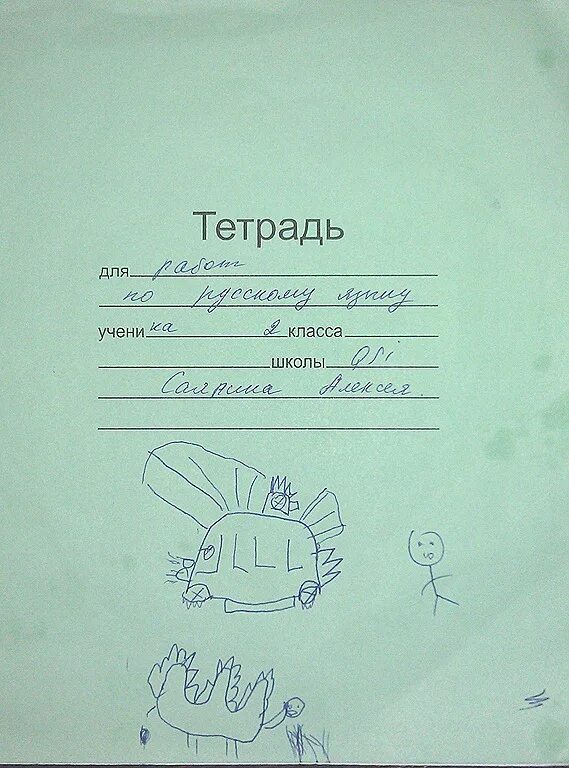 Тетрадь
для работ
по русскому языку
ученика 2 класса
школы QSi
Саляхина Алексея.